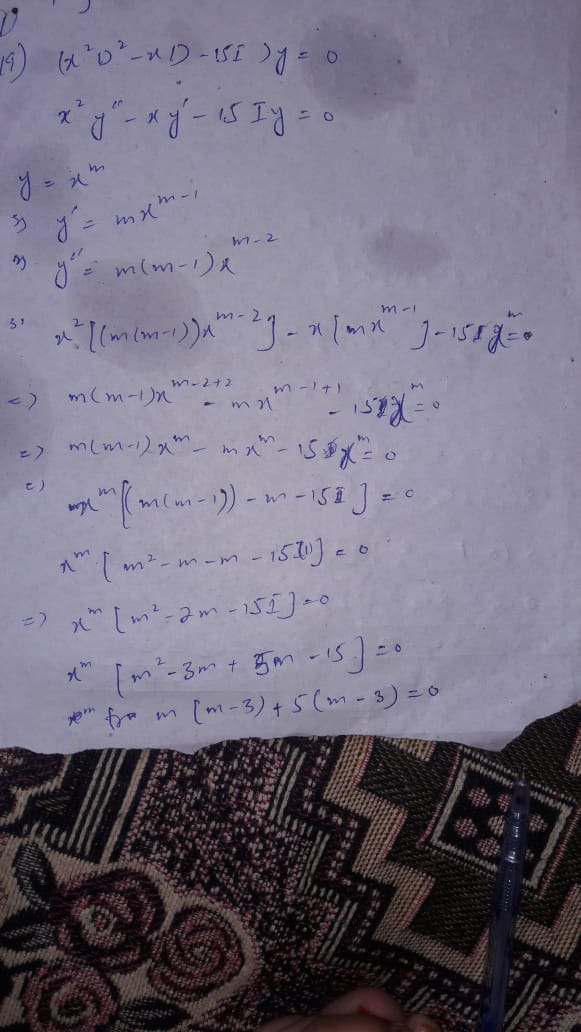 19) (x²D² - xD - 15I)y = 0
x²y'' - xy' - 15Iy = 0
y = x^m
y' = mx^(m-1)
y'' = m(m-1)x^(m-2)
x²[(m(m-1))x^(m-2)] - x[mx^(m-1)] - 15Ix^m = 0
=) m(m-1)x^(m-2+2) - mx^(m-1+1) - 15x^m = 0
=) m(m-1)x^m - mx^m - 15x^m = 0
=) x^m[(m(m-1)) - m - 15I] = 0
x^m[m² - m - m - 15I] = 0
=) x^m[m² - 2m - 15I] = 0
x^m[m² - 3m + 5m - 15] = 0
m[m-3) + 5(m-3) = 0